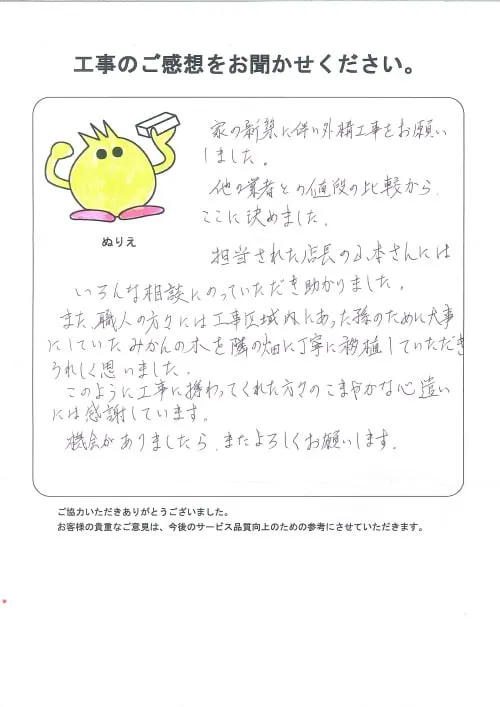 工事のご感想をお聞かせください。
家の新築に伴い外構工事をお願い
しました。
他の業者との値段の比較から、
ここに決めました。
ぬりえ
担当された店長の山本さんには
いろんな相談にのっていただき助かりました。
また、職人の方々には工事区域内にあった孫のために大事
にしていたみかんの木を隣の畑に丁寧に移植していただき
うれしく思いました。
このように工事に携わってくれた方々のこまやかな心遣い
には感謝しています。
機会がありましたら、またよろしくお願いします。
ご協力いただきありがとうございました。
お客様の貴重なご意見は、今後のサービス品質向上のための参考にさせていただきます。